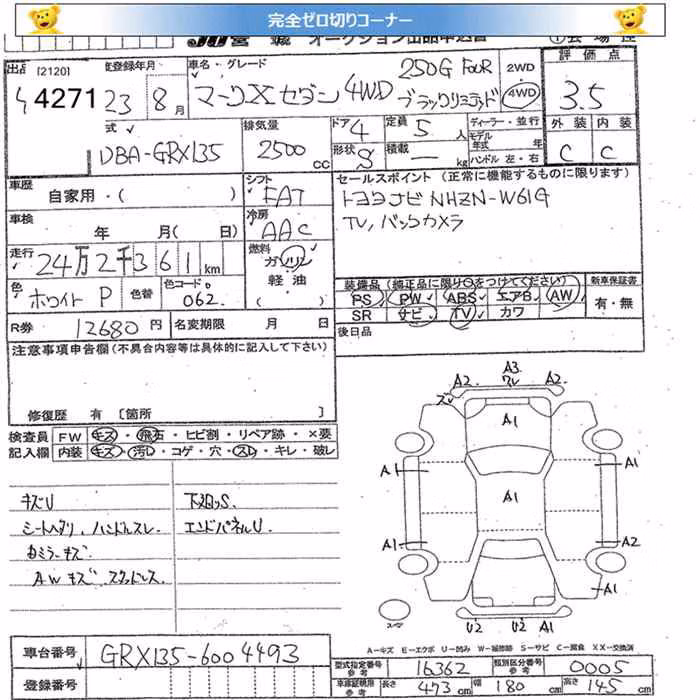 完全ゼロ切りコーナー
評価点
出品 [2120] 登録年月 車名・グレード 250G FOUR 2WD
4271 23 8月 マークXセダン 4WD ブラックリミテッド 4WD 3.5
排気量 ドア 定員 ディーラー・並行 外装 内装
DBA-GRX135 2500cc 4 5人 モデル年式 年
形状 S 積載 ― kg ハンドル 左・右 C C
車歴 自家用・( ) シフト FAT セールスポイント (正常に機能するものに限ります)
車検 年 月( 日) 冷房 AAC トヨタナビ NHZN-W61G
TV, バックカメラ
走行 24万2千361km 燃料 ガソリン
軽油
( )
装備品 (純正品に限り○をつけてください) 新車保証書
色 ホワイトP 色替 色コード 062
PS PW ABS エアB AW 有・無
SR ナビ TV カワ
R券 12680円 名変期限 月 日 後日品
注意事項申告欄 (不具合内容等は具体的に記入して下さい)
修復歴 有 [箇所 ]
検査員 FW キズ・飛石・ヒビ割・リペア跡・×要
記入欄 内装 キズ・汚レ・コゲ・穴・スレ・キレ・破レ
キズU 下メロッS
シートヘタリ ハンドルスレ エンドパネルU
カミラーキズ
AWキズ スタッドレス
A3
A2 ワレ A2
A1
A1 A1 A1
A1 A2
A1
U2 U2 A1
A-キズ E-エクボ U-凹み W-補修跡 S-サビ C-腐食 XX-交換済
車台番号 GRX135-6004493
登録番号
型式指定番号 参考 16362 類別区分番号 参考 0005
車庫証明用 参考 長さ 473cm 幅 180cm 高さ 145cm